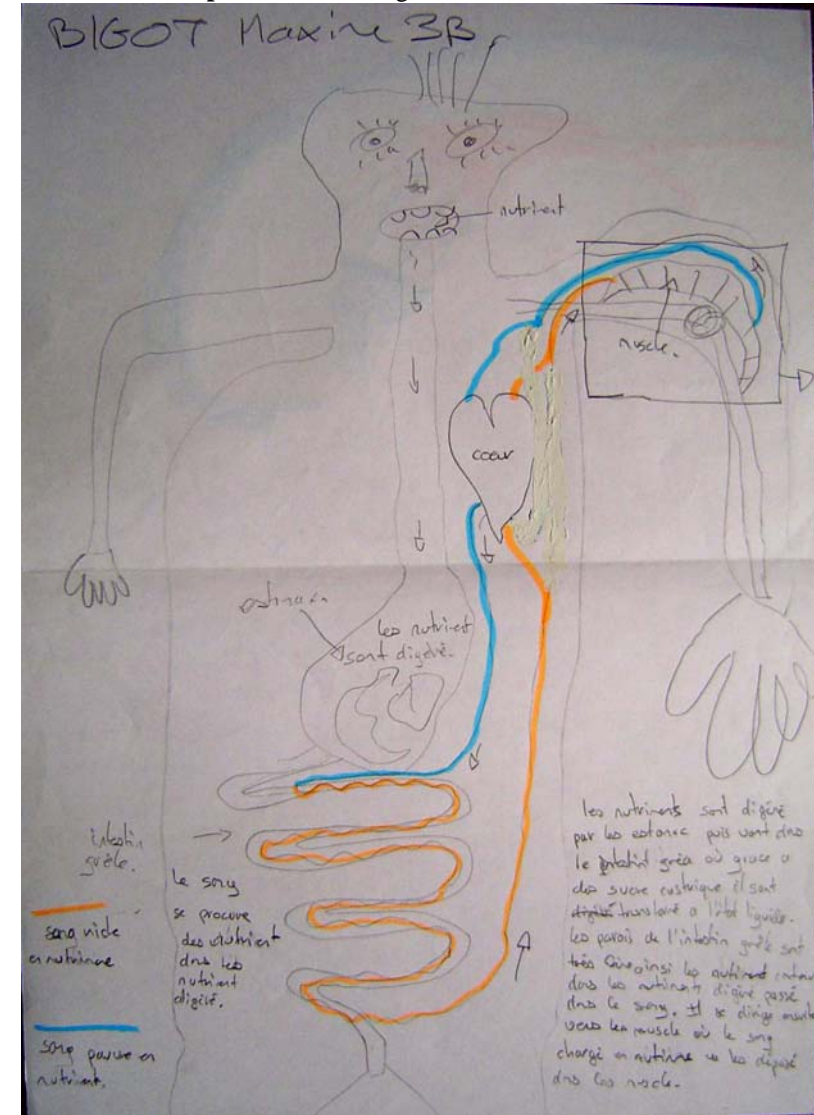 BIGOT Maxime 3B
nutriment
muscle.
coeur
estomac
les nutriment
sont digéré.
intestin
grèle.
le sang
se procure
des nutriment
dans les
nutriment
digéré.
sang riche
en nutrimme
sang pauvre en
nutriment.
les nutriments sont digéré
par les estomac puis vont dans
le grèa où grace a
des sucre il sont
transformé a l'état liquide.
les parois de l'intestin grèle sont
très fine ainsi les nutriment
dans les nutriment digéré passé
dans le sang. Il se dirige ensuite
vers les muscle où le sang
chargé en nutrimme les déposé
dans les muscle.